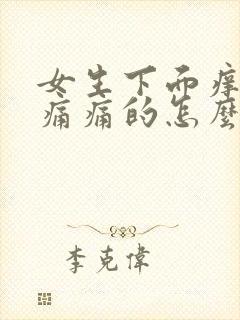 女生下面痒
痛痛的怎麽
李克偉